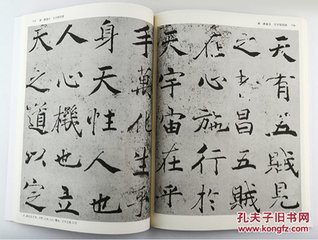 天有五賊見
之者昌五賊
在心施行於
天宇宙在乎
手萬化生乎
身天性人也
人心機也立
天之道以定
孔夫子旧书网